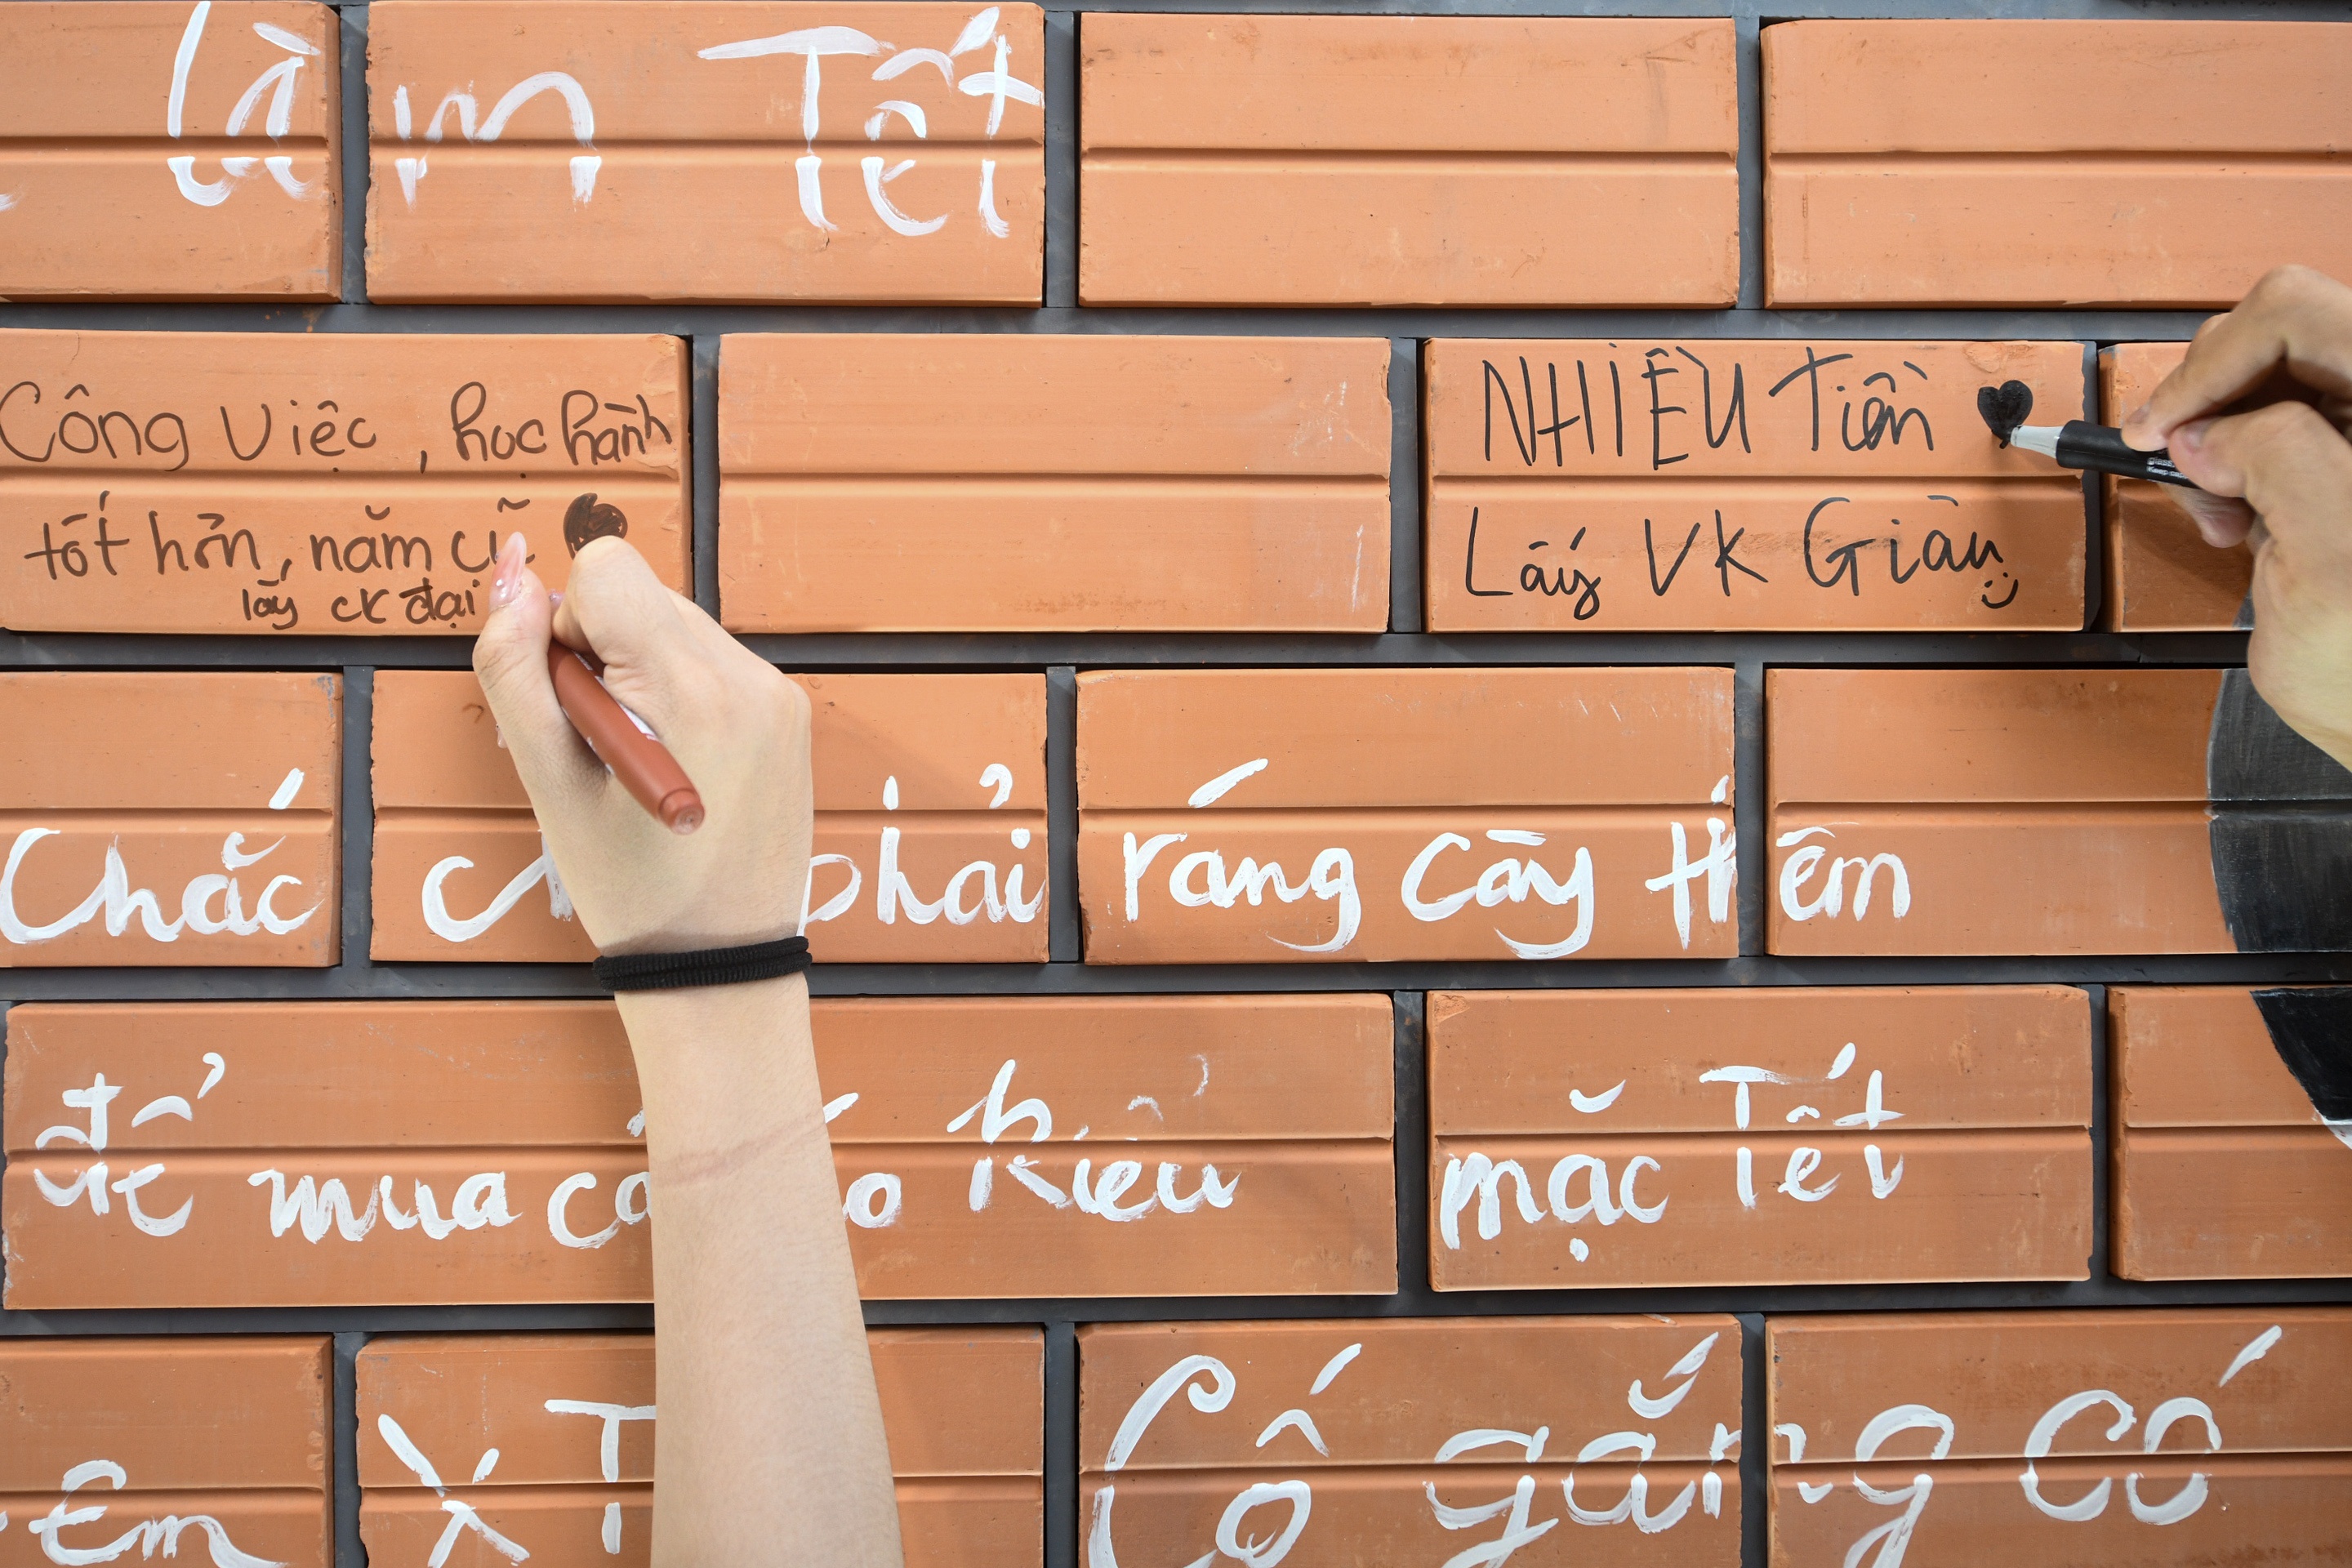 làm Tết
Công việc, học hành
tốt hơn, năm cũ
lấy ck đại
NHIỀU Tiền
Lấy VK Giàu
Chắc phải ráng cày thêm
để mua kiểu mặc Tết
Em
Cố gắng có